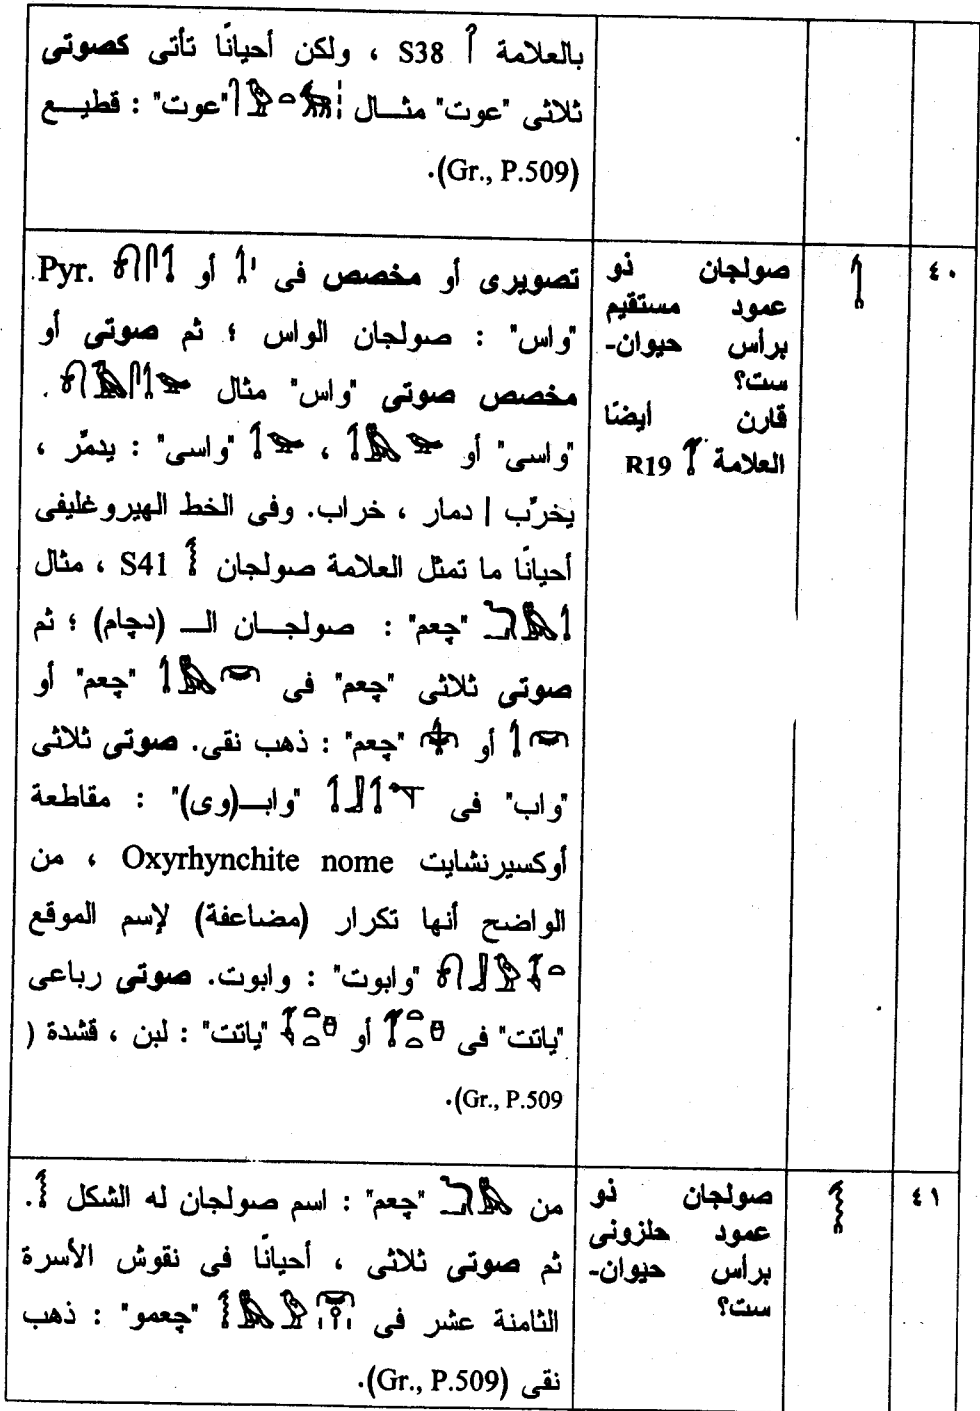 بالعلامة 𓋾 S38 ، ولكن أحيانًا تأتى كصوتى
ثلاثى "عوت" مثال "عوت" : قطيع
(Gr., P.509).
٤٠
𓌀
صولجان ذو
عمود مستقيم
برأس حيوان-
ست؟
قارن أيضًا
العلامة R19
تصويرى أو مخصص فى 𓌀𓏤 أو Pyr.
"واس" : صولجان الواس ؛ ثم صوتى أو
مخصص صوتى "واس" مثال .
"واسى" أو ، "واسى" : يدمّر ،
يخرّب | دمار ، خراب. وفى الخط الهيروغليفى
أحيانًا ما تمثل العلامة صولجان 𓌁 S41 ، مثال
"چعم" : صولجان الـ (دچام) ؛ ثم
صوتى ثلاثى "چعم" فى "چعم" أو
أو "چعم" : ذهب نقى. صوتى ثلاثى
"واب" فى "وابـ(وى)" : مقاطعة
أوكسيرنشايت Oxyrhynchite nome ، من
الواضح أنها تكرار (مضاعفة) لإسم الموقع
"وابوت" : وابوت. صوتى رباعى
"ياتت" فى أو "ياتت" : لبن ، قشدة (
Gr., P.509).
٤١
𓌁
صولجان ذو
عمود حلزونى
برأس حيوان-
ست؟
من "چعم" : اسم صولجان له الشكل 𓌁.
ثم صوتى ثلاثى ، أحيانًا فى نقوش الأسرة
الثامنة عشر فى "چعمو" : ذهب
نقى (Gr., P.509).